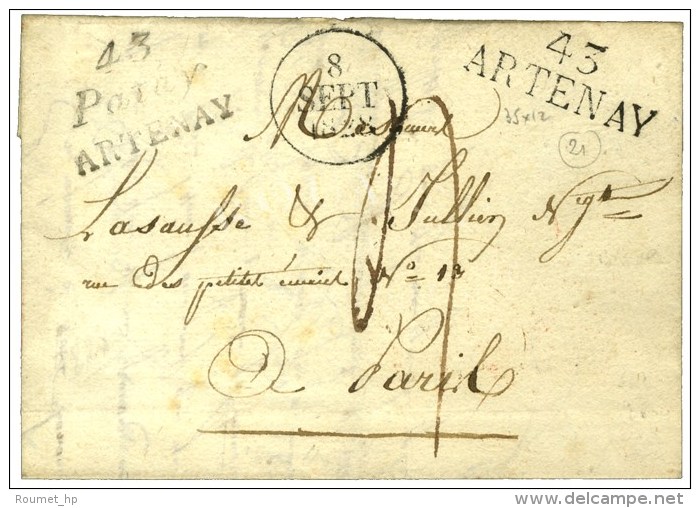 43
Patay
ARTENAY
8
SEPT
1828
43
ARTENAY
35x12
21
Messieurs
Lasausse & Jullien Ngts
rue des petites écuries, No 13
A Paris
Roumet_hp
www.delcampe.net